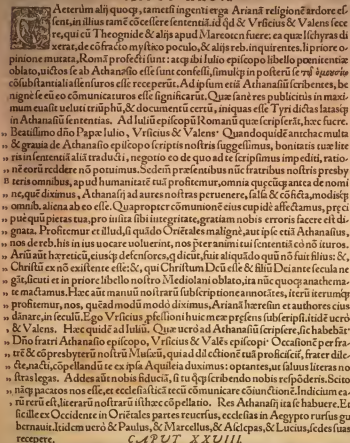 CAeterum alij quoque, tametsi ingenti erga Arianā religionē ardore es-
sent, in illius tamē cōcessere sententiā. id quod & Vrsicius & Valens fece
re, qui cū Theognide & alijs apud Mareoten fuere: ea quæ Ischyras di
xerat, de cōfracto mystico poculo, & alijs reb. inquirentes. Ii priore o-
pinione mutata, Romā profecti sunt: atque ibi Iulio episcopo libello pœnitentiæ
oblato, uictos se ab Athanasio esse sunt confessi, simulque in posterū se
cōsubstantialis assensuros esse receperūt. Ad ipsum etiā Athanasiū scribentes, be
nignè se eū eo cōmunicaturos esse significarūt. Quæ sanè res publicitus in maxi-
mum euasit ueluti triūphū, & documentū certū, iniquas esse Tyri dictas latasque
in Athanasiū sententias. Ad Iuliū episcopū Romanū quæ scripserāt, hæc fuere.
„ Beatissimo dño Papæ Iulio, Vrsicius & Valens. Quandoquidē antehac multa
„ & grauia de Athanasio episcopo scriptis nostris suggessimus, bonitatis tuæ lite
„ ris in sententiā aliā traducti, negotio eo de quo ad te scripsimus impediti, ratio-
„ nē eorū reddere nō potuimus. Sedem præsentibus nūc fratribus nostris presby
„ teris omnibus, apud humanitatē tuā profitemur, omnia quæcunque antea de nomi
„ ne, quē diximus, Athanasij ad aures nostras peruenere, falsa & cōficta, modisque
„ omnib. aliena ab eo esse. Quapropter cōmunionē eius cupidè affectamus, præci
„ puè quū pietas tua, pro insita sibi integritate, gratiam nobis erroris facere eā di-
„ gnata. Profitemur et illud, si quādo Oriētales malignè, aut ipse etiā Athanasius,
„ nos de reb. his in ius uocare uoluerint, nos præter animi tui sententiā eò nō ituros.
„ Ariū aūt hæreticū, eiusque defensores, qui dicūt, fuit aliquādo quū nō fuit filius: &,
„ Christū ex nō existente esse: &, qui Christum Deū esse & filiū Dei ante secula ne
„ gāt, sicuti et in priore libello nostro Mediolani oblato, ita nūc quoque anathema-
„ te mactamus. Hæc aūt manuū nostrarū subscriptione annotātes, iterū iterumque
„ profitemur, nos, quēadmodū modò diximus, Arianā hæresim et authores eius
„ dānare, in seculū. Ego Vrsicius professioni huic meæ præsens subscripsi. itidē uerò
„ & Valens. Hæc quidē ad Iuliū. Quæ uerò ad Athanasiū scripsere, sic habebāt
„ Dño fratri Athanasio episcopo, Vrsicius & Valēs episcopi. Occasionē per fra-
„ trē & cōpresbyterū nostrū Musæū, qui ad dilectionē tuā proficiscit, frater dile-
„ cte, nacti, cōpellandū te ex ipsa Aquileia duximus: optantes, ut saluus literas no
„ stras legas. Addes aūt nobis fiduciā, si tu quoque rescribendo nobis respōderis. Scito
„ itaque pacatos nos esse, et ecclesiasticā tecū cōmunicare cōiunctionē. Indicium ea-
„ rū rerū est, literarū nostrarū isthæc cōpellatio. Res Athanasij ita se habuere. Et
sic ille ex Occidente in Oriētales partes reuersus, ecclesias in Aegypto rursus gu
bernauit. Itidem uerò & Paulus, & Marcellus, & Asclepas, & Luclus, sedes suas
recepere. CAPVT XXIIII.